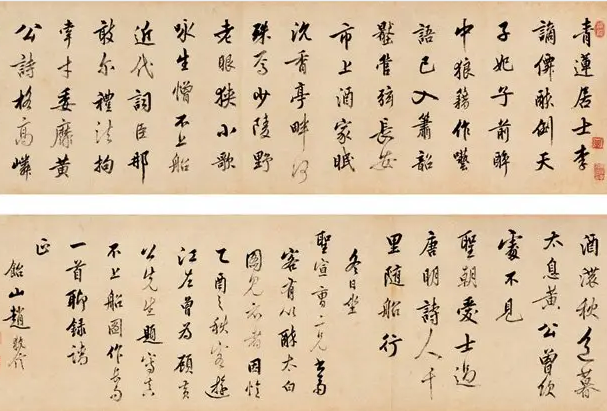 青蓮居士李
謫僊酣倒天
子妃子前醉
中狼藉作囈
語已入簫韶
管弦長安
市上酒家眠
沉香亭畔
殊焉少陵野
老眼狹小歌
咏生憎不上船
近代詞臣那
敢尔禮法拘
牽才委靡黄
公詩格高嶙
酒濃秋色暮
太息黃公曾
處不見
聖朝愛士過
唐明詩人千
里隨船行
冬日坐
聖宣曹二兄
客有以醉太白
圖見示者因憶
乙酉之秋客遊
江左曾為顧黃
公先生題寫真
不上船圖作長句
一首聊録請
正
飴山趙執信